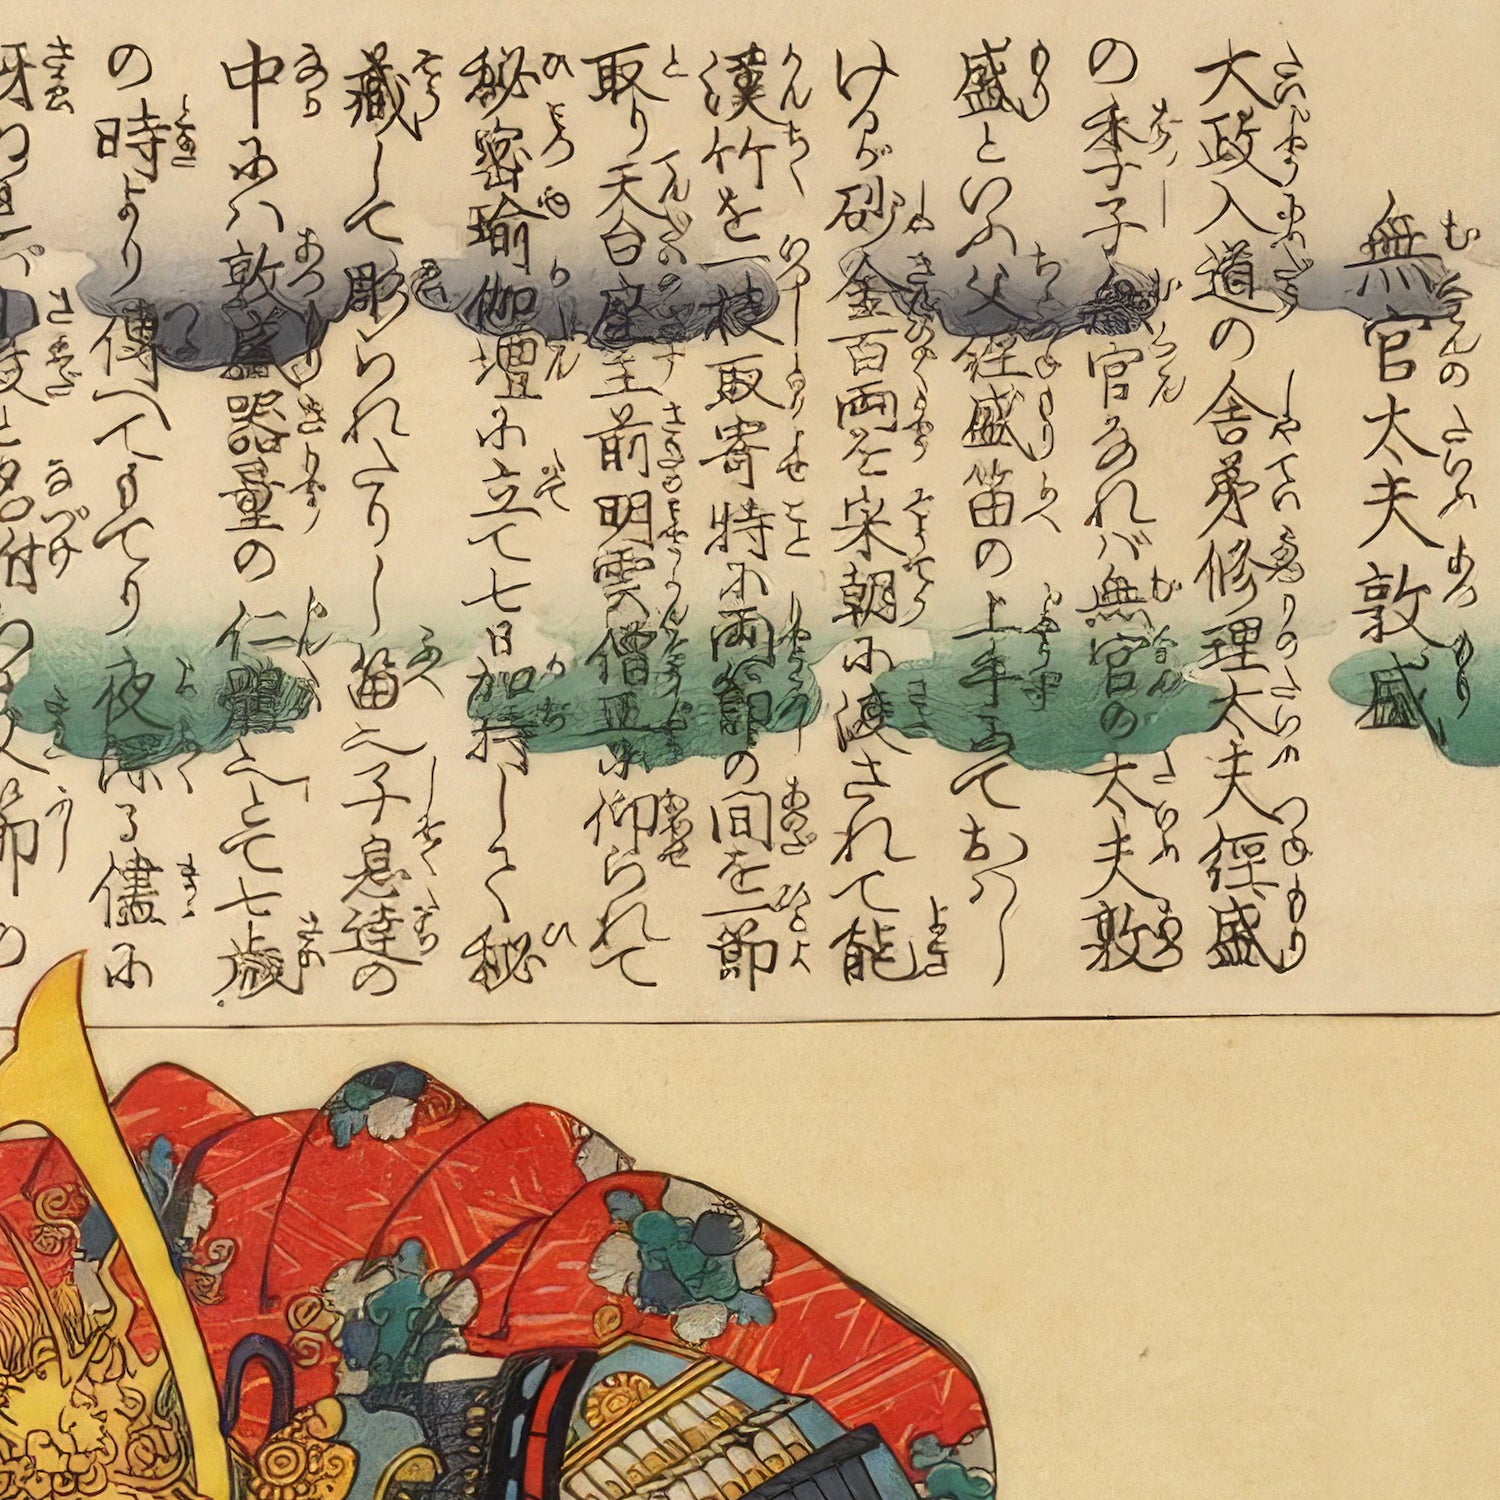 無官太夫敦盛
大政入道の舎弟修理太夫經盛
の季子無官なれバ無官の太夫敦
盛といふ父經盛笛の上手にて
けるが砂金百両を宋朝に渡されて能
漢竹を一枝取寄特に両節の間を一節
取り天台座主前明雲僧正に仰られて
秘密瑜伽壇に立て七日加持して秘
藏して彫られたりし笛也子息達の
中にハ敦盛器量の仁躰也とて七歳
の時より傳へてもてり夜深る儘に